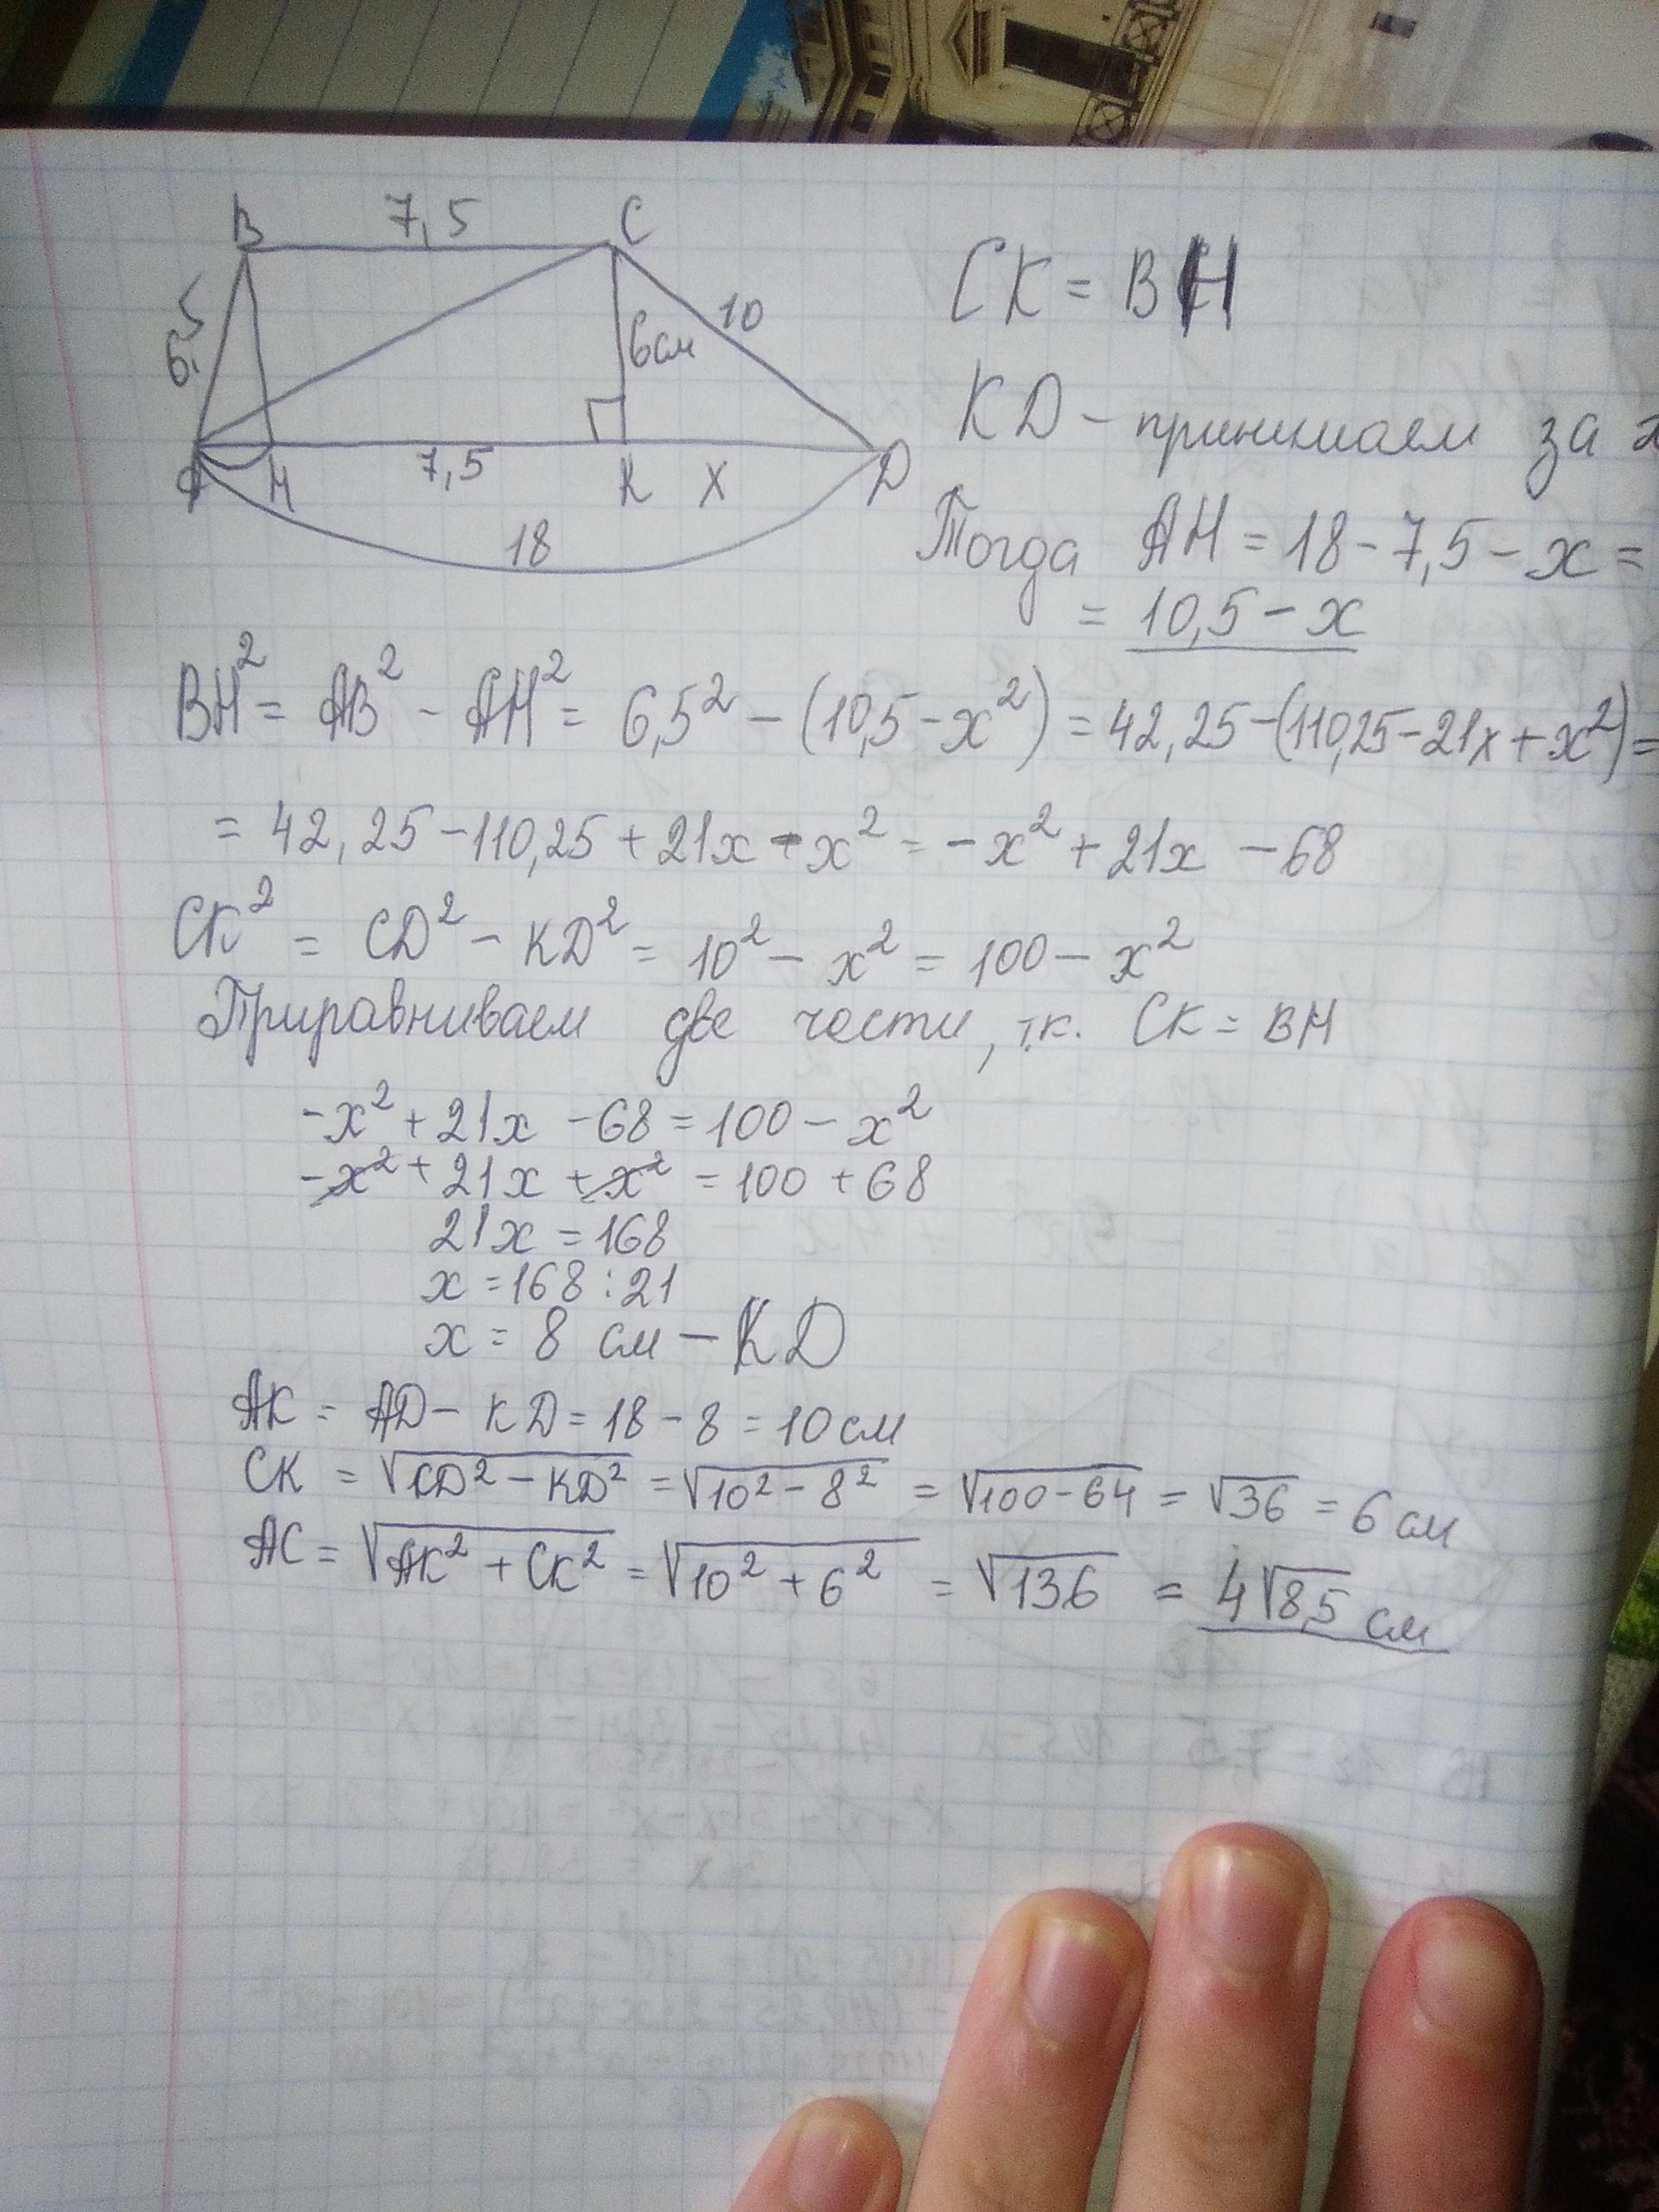 B 7,5 C
6,5
10
6см
A H 7,5 K X D
18
CK = BH
KD - принимаем за x
Тогда AH = 18 - 7,5 - x =
= 10,5 - x
BH² = AB² - AH² = 6,5² - (10,5 - x²) = 42,25 - (110,25 - 21x + x²) =
= 42,25 - 110,25 + 21x - x² = -x² + 21x - 68
CK² = CD² - KD² = 10² - x² = 100 - x²
Приравниваем две части, т.к. CK = BH
-x² + 21x - 68 = 100 - x²
-x² + 21x + x² = 100 + 68
21x = 168
x = 168 : 21
x = 8 см - KD
AK = AD - KD = 18 - 8 = 10 см
CK = √CD² - KD² = √10² - 8² = √100 - 64 = √36 = 6 см
AC = √AK² + CK² = √10² + 6² = √136 = 4√8,5 см